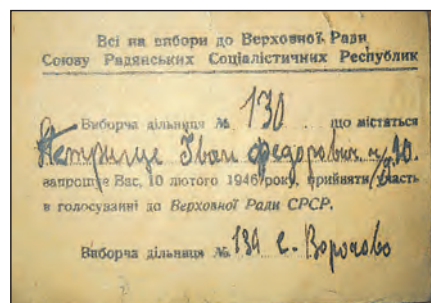 Всі на вибори до Верховної Ради
Союзу Радянських Соціалістичних Республик
Виборча дільниця № 130 що міститься
Іван Федорович 10.
запрошує Вас, 10 лютого 1946 року, прийняти участь
в голосуванні до Верховної Ради СРСР.
Виборча дільниця № 130 с. Ворочово